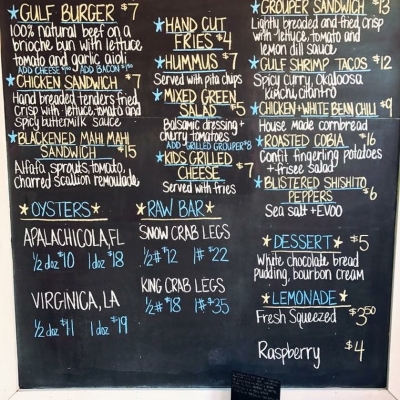 GULF BURGER $7
100% natural beef on a
brioche bun with lettuce
tomato and garlic aioli
ADD CHEESE $1.00 ADD BACON $1.00
CHICKEN SANDWICH $7
Hand breaded tenders fried,
Crisp with lettuce, tomato and
Spicy buttermilk sauce
BLACKENED MAHI MAHI
SANDWICH $15
Alfalfa, sprouts, tomato,
charred Scallion remoulade
HAND CUT
FRIES $4
HUMMUS $7
Served with pita chips
MIXED GREEN
SALAD $5
Balsamic dressing +
cherry tomatoes
ADD GRILLED GROUPER $8
KIDS GRILLED
CHEESE $7
Served with fries
GROUPER SANDWICH $13
Lightly breaded and fried, crisp
with lettuce, tomato and
lemon dill sauce
GULF SHRIMP TACOS $12
Spicy curry, okaloosa
kimchi, cilantro
CHICKEN + WHITE BEAN CHILI $9
House made cornbread
ROASTED COBIA $16
Confit fingerling potatoes
+ frisee salad
BLISTERED SHISHITO
PEPPERS $6
Sea salt + EVOO
OYSTERS
APALACHICOLA, FL
1/2 doz $10 1 doz $18
VIRGINICA, LA
1/2 dz $11 1 doz $19
RAW BAR
SNOW CRAB LEGS
1/2# $12 1# $22
KING CRAB LEGS
1/2# $18 1# $35
DESSERT $5
White chocolate bread
pudding, bourbon cream
LEMONADE
Fresh Squeezed $3.50
Raspberry $4